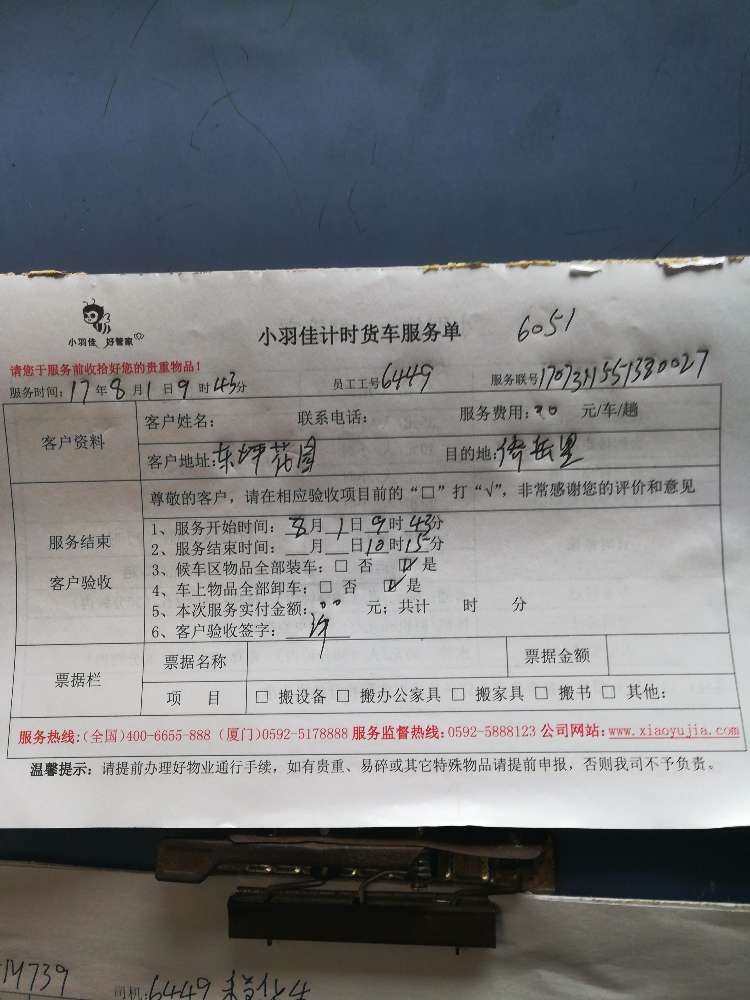 小羽佳 好管家
小羽佳计时货车服务单 6051
请您于服务前收拾好您的贵重物品!
服务时间: 17年8月1日9时43分 员工工号6449 服务联号1707311551380027
客户资料
客户姓名: 联系电话: 服务费用: 元/车/趟
客户地址:东坪花园 目的地:
服务结束
客户验收
尊敬的客户，请在相应验收项目前的“□”打“√”，非常感谢您的评价和意见
1、服务开始时间: 8月1日9时43分
2、服务结束时间: 月 日10时15分
3、候车区物品全部装车: □ 否 ☑ 是
4、车上物品全部卸车: □ 否 ☑ 是
5、本次服务实付金额: 元; 共计 时 分
6、客户验收签字:
票据栏
票据名称 票据金额
项 目 □ 搬设备 □ 搬办公家具 □ 搬家具 □ 搬书 □ 其他:
服务热线:(全国)400-6655-888 (厦门)0592-5178888 服务监督热线: 0592-5888123 公司网站: www.xiaoyujia.com
温馨提示: 请提前办理好物业通行手续，如有贵重、易碎或其它特殊物品请提前申报，否则我司不予负责。
M739 司机:6449